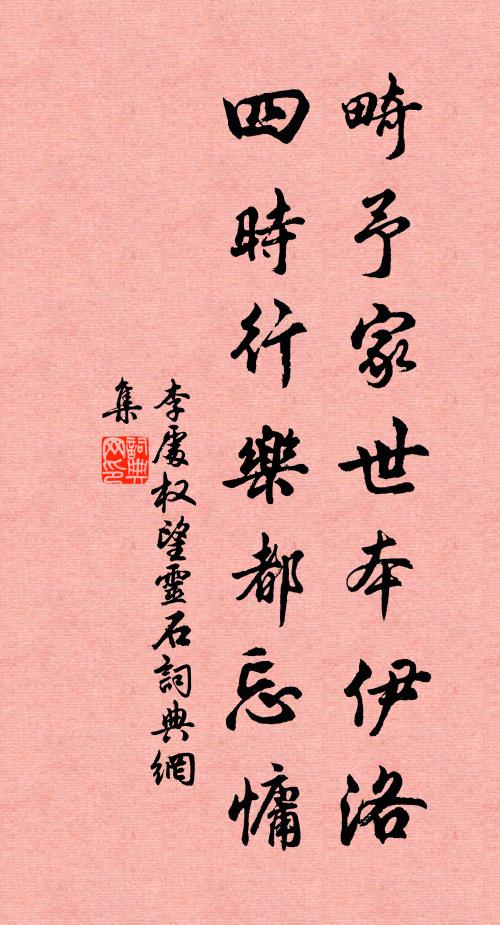 畸予家世本伊洛
四時行樂都忘慵
李處权望靈石詞典網
集
詞典网印